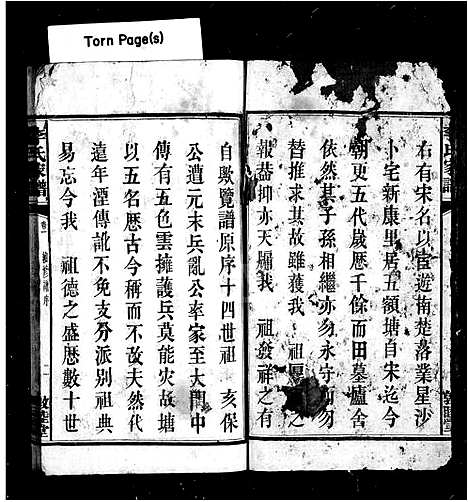 Torn Page(s)
李氏家譜
右有宋名以宦遊南楚落業星沙
卜宅新康里居五領塘自宋迄今
朝更五代歲歷千餘而田墓廬舍
依然其子孫相繼亦勿永守前勿
替推求其故雖獲我 祖
報葢抑亦天賜我 祖發祥之有
自歟覽譜原序十四世祖 亥保
公遭元末兵亂公率家至大開中
傳有五色雲擁護兵莫能灾故塘
以五名歷古今稱而不故夫然代
遠年湮傳訛不免支分派別祖典
易忘今我 祖德之盛歷數十世
李氏家譜
序
二
敦睦堂